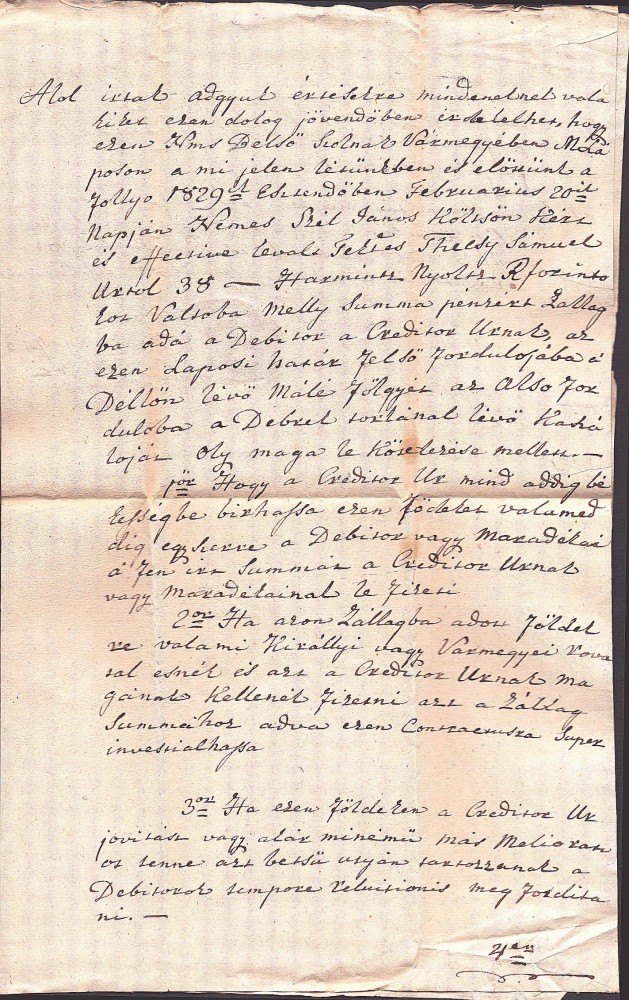 Alol irtak adgyuk értésekre mindeneknek vala
kiket ezen dolog jövendőben érdekelhet, hogy
ezen Nms Belső Szolnok Vármegyében Mág
poson a mi jelen létünkben és előttünk a
folyo 1829ik Esztendőben Februarius 20ik
Napján Nemes Szél János Költsön kért
és effective levalt Tekes Thelsy Sámuel
Urtol 38 — Harmintz Nyoltz Rforinto
kot Valtoba melly Summa pénzért Zállag
ba adá a Debitor a Creditor Urnak, az
ezen Laposi határ felső fordulojába á
Déllőn lévő Málé földgyét az Also for
duloba a Debrek torkánál lévő Kaszá
loját oly maga le Kötelezése mellett. —
1ör Hogy a Creditor Ur mind addig bé
kességbe birhassa ezen földeket valamed
dig egyszerre a Debitor vagy Maradékai
á fen irt Summát a Creditor Urnak
vagy Maradékainak le fizeti
2or Ha azon Zállagba adott földek
re valami Királlyi vagy Vármegyei rova
tal esnék és azt a Creditor Urnak ma
gának Kellenék fizetni azt a Zállag
Summához adva ezen Contractusra Super
investialhassa
3or Ha ezen földeken a Creditor Ur
jovitást vagy akár minémü más Meliorati
ot tenne azt betsü utyán tartozzanak a
Debitorok tempore reluitionis meg fordita
ni. —
4er